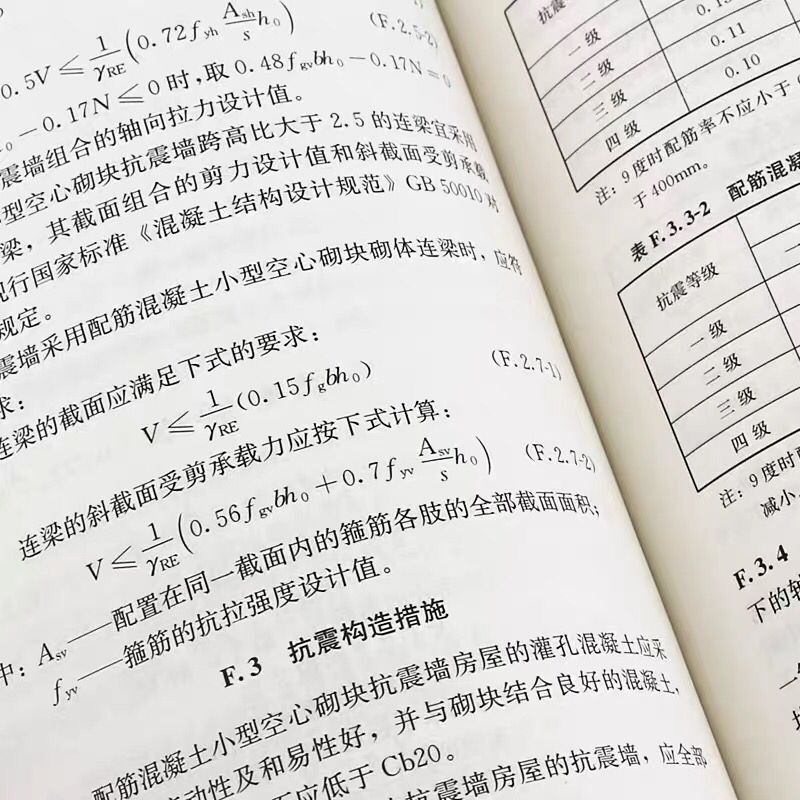 (F.2.5-2)
0.5V ≤ 1/γRE (0.72fyh Ash/s h0)
- 0.17N ≤ 0 时,取 0.48fgvbh0 - 0.17N = 0
震墙组合的轴向拉力设计值。
型空心砌块抗震墙跨高比大于 2.5 的连梁宜采用
梁，其截面组合的剪力设计值和斜截面受剪承载
现行国家标准《混凝土结构设计规范》GB 50010 对
规定。
震墙采用配筋混凝土小型空心砌块砌体连梁时，应符
求：
连梁的截面应满足下式的要求：
V ≤ 1/γRE (0.15fgbh0) (F.2.7-1)
连梁的斜截面受剪承载力应按下式计算：
V ≤ 1/γRE (0.56fgvbh0 + 0.7fyv Asv/s h0) (F.2.7-2)
中：Asv——配置在同一截面内的箍筋各肢的全部截面面积；
fyv——箍筋的抗拉强度设计值。
F.3 抗震构造措施
配筋混凝土小型空心砌块抗震墙房屋的灌孔混凝土应采
动性及和易性好，并与砌块结合良好的混凝土，
不应低于 Cb20。
抗震墙房屋的抗震墙，应全部
抗震
一级 0.13
二级 0.11
三级 0.10
四级
注：9度时配筋率不应小于
于400mm。
表 F.3.3-2 配筋混凝
抗震等级
一级
二级
三级
四级
注：9度时
减小
F.3.4
下的轴
一